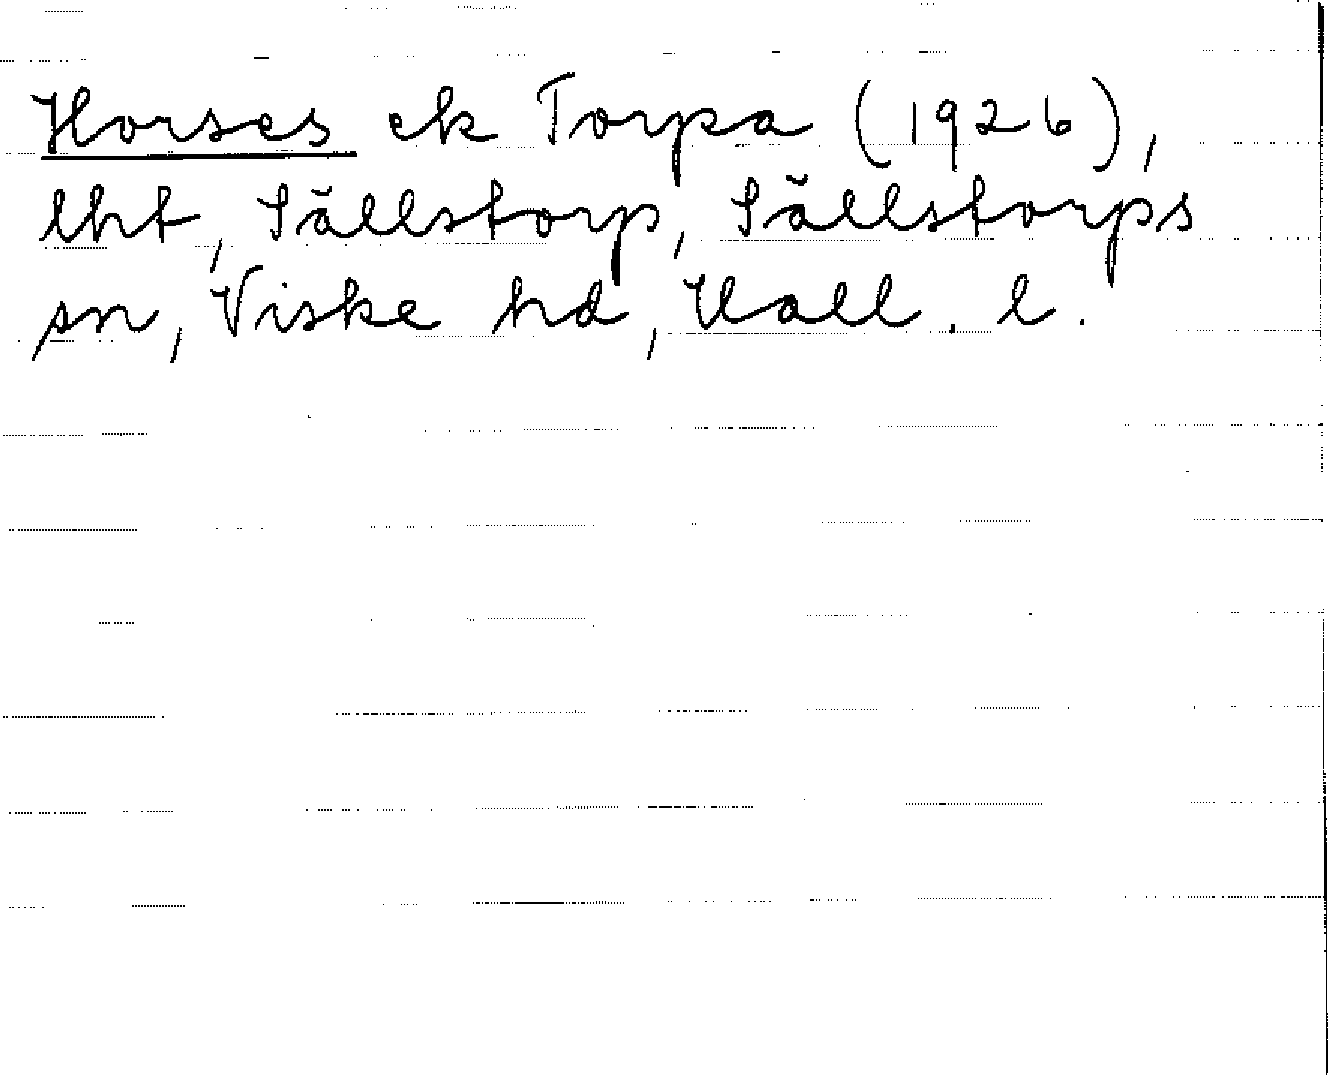 Horses ek Torpa (1926),
lht, Sällstorp, Sällstorps
sn, Viske hd, Hall. l.